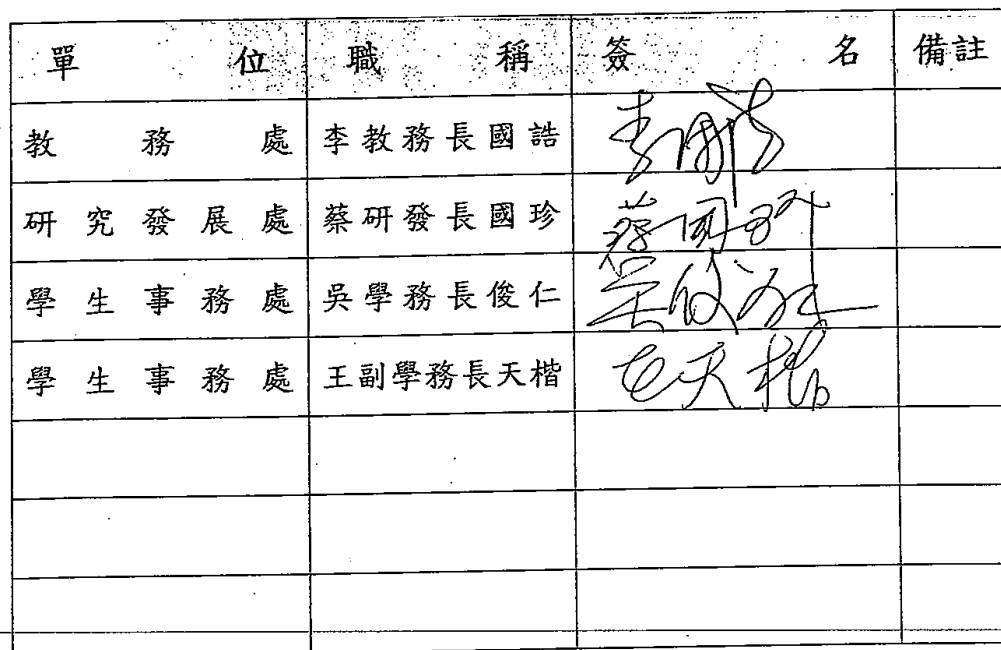 單位 職稱 簽名 備註
教務處 李教務長國誥 李國誥
研究發展處 蔡研發長國珍 蔡國珍
學生事務處 吳學務長俊仁 吳俊仁
學生事務處 王副學務長天楷 王天楷